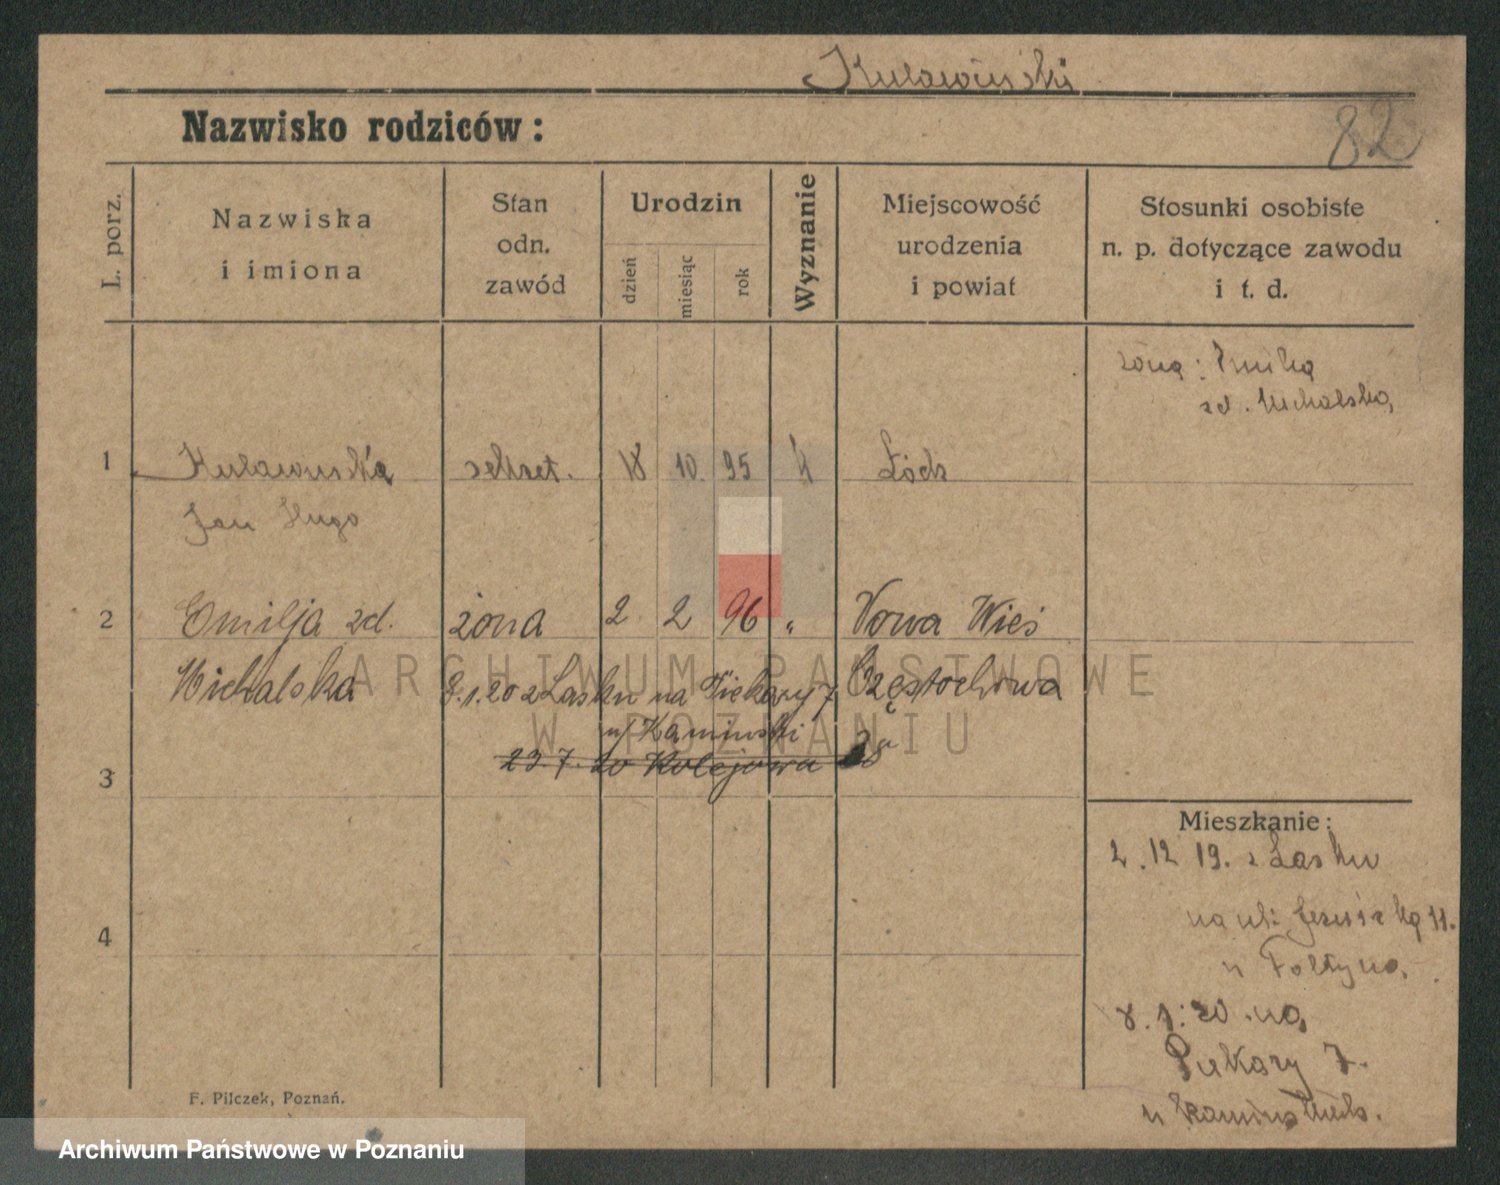 Kulawiński
82
Nazwisko rodziców:
L. porz.
Nazwiska
i imiona
Stan
odn.
zawód
Urodzin
dzień
miesiąc
rok
Wyznanie
Miejscowość
urodzenia
i powiat
Stosunki osobiste
n. p. dotyczące zawodu
i t. d.
żona: Emilja
zd. Michalska
1 Kulawiński sekret. 18 10. 95 k Łódź
Jan Hugo
2 Emilja zd. żona 2 2 96 " Nowa Wieś
Michalska 8.1.20 z Lasku na Piekary 7 Częstochowa
u/ Kamiński
3 23.7.20 Kolejowa
Mieszkanie:
2.12 19. z Lasku
na ul: Jezuicką 11.
u
4
8.1.20 na
Piekary 7.
u
F. Pilczek, Poznań.
ARCHIWUM PAŃSTWOWE
W POZNANIU
Archiwum Państwowe w Poznaniu